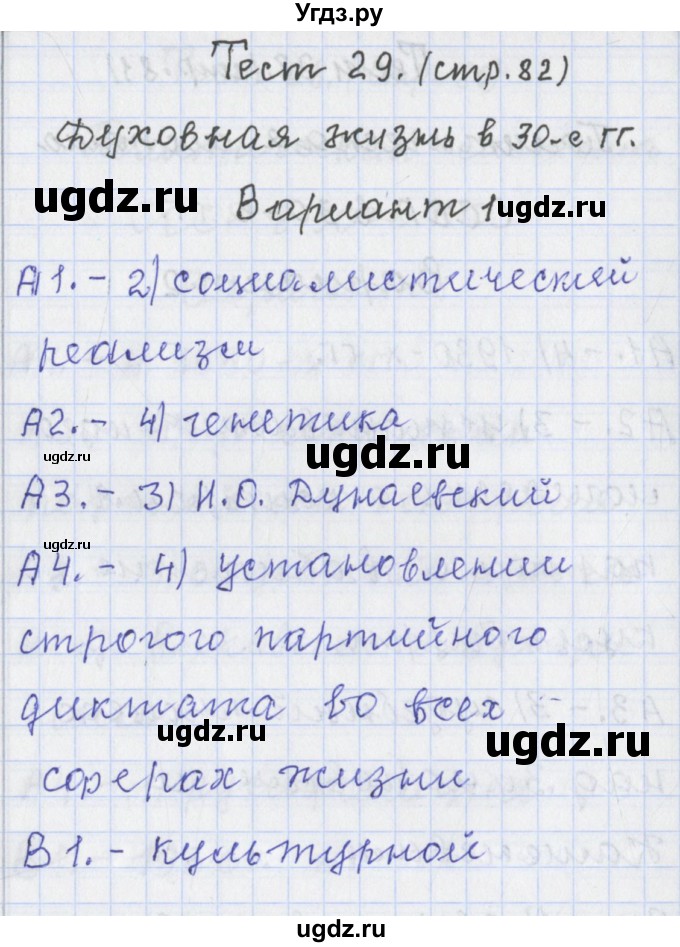 Угдз.ру
Тест 29. (стр. 82)
Духовная жизнь в 30-е гг.
ugdz.ru Вариант 1 ugdz.ru
А1. - 2) социалистический
реализм
ugdz.ru
А2. - 4) генетика
ugdz.ru
А3. - 3) И.О. Дунаевский
ugdz.ru
А4. - 4) установлении
строгого партийного
диктата во всех
ugdz.ru ugdz.ru
сферах жизни
В1. - культурной
ugdz.ru